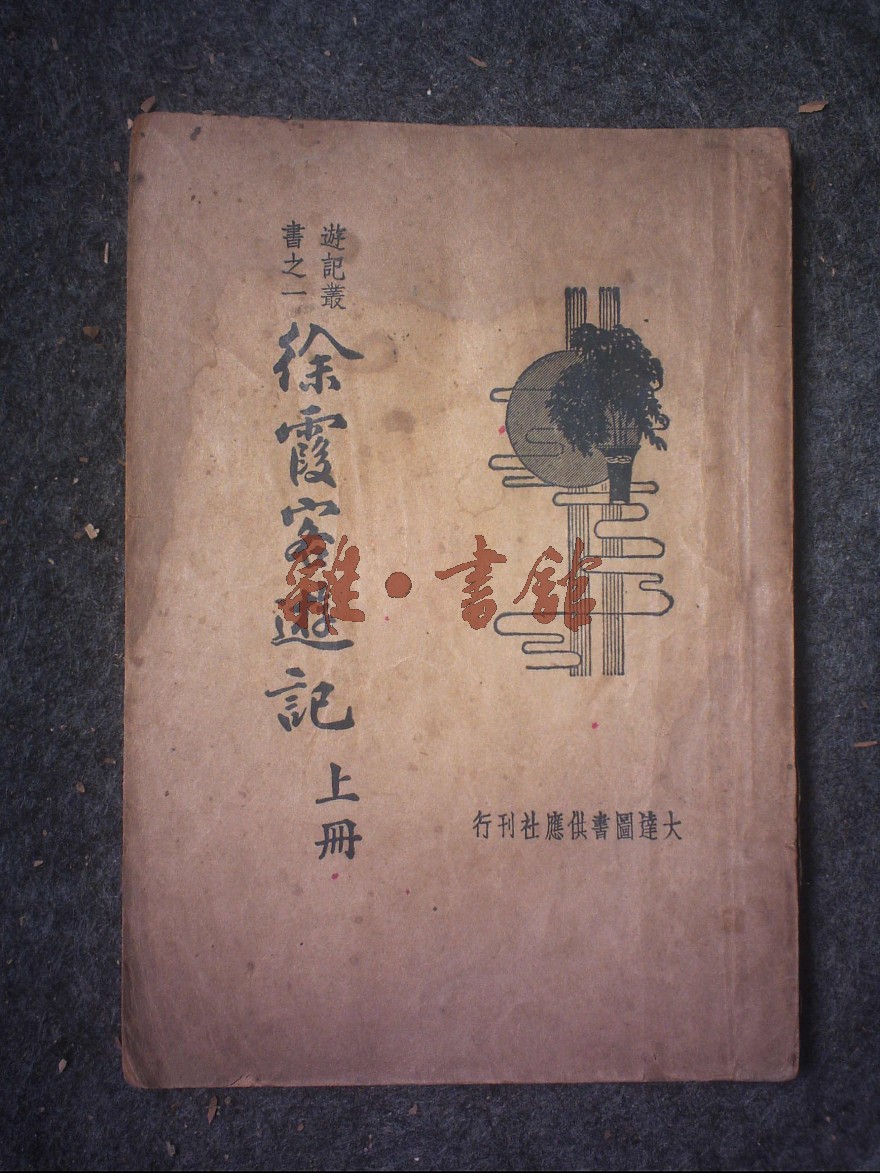 遊記叢
書之一
徐霞客遊記
上冊
大達圖書供應社刊行
雜·書館